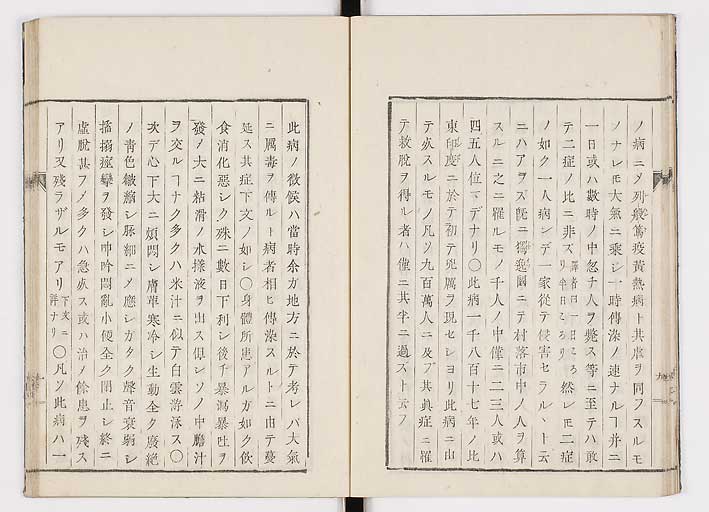 ノ病ニメ列般篤疫黄熱病ト其虐ヲ同フスルモ
ノナレモ大氣ニ乘シ一時傳染ノ速ナルヿ并ニ
一日或ハ數時ノ中忽チ人ヲ斃ス等ニ至テハ敢
テ二症ノ比ニ非ズ 然レモ二症
ノ如ク一人病ンデ一家從テ侵害セラルヽト云
ニハアラズ既ニ獨逸國ニテ村落市中ノ人ヲ算
スルニ之ニ罹ルモノ千人ノ中僅ニ二三人或ハ
四五人位マデナリ〇此病一千八百十七年ノ比
東印度ニ於テ初テ兇厲ヲ現セショリ此病ニ由
テ死スルモノ凡ソ九百萬人ニ及ブ其眞症ニ罹
テ救脫ヲ得ル者ハ僅ニ其半ニ過ズト云フ
此病ノ徴候ハ當時余ガ地方ニ於テ考レバ大氣
ニ属毒ヲ傳ルト病者相ヒ傳染スルトニ由テ蔓
延ス其症下文ノ如シ〇身體所患アルガ如ク飲
食消化惡シク殊ニ數日下利シ後チ暴瀉暴吐ヲ
發シ大ニ粘滑ノ水樣液ヲ出ス但シソノ中膽汁
ヲ交ルヿナク多クハ米汁ニ似テ白雲游泳ス〇
次デ心下大ニ煩悶シ膚革寒冷シ生動全ク廢絶
ノ青色皺縮シ脉細ニメ應シガタク聲音衰弱シ
搐搦痙攣ヲ發シ呻吟悶亂小便全ク閉止シ終ニ
虛脫甚フメ多クハ急死ス或ハ治ノ餘患ヲ殘ス
アリ又殘ラザルモアリ 下文ニ詳ナリ 〇凡ソ此病ハ一